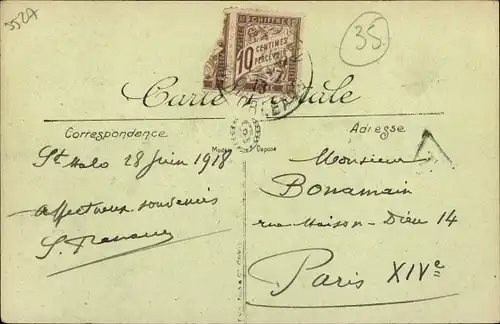 352A
35
CHIFFRE
10 CENTIMES
À PERCEVOIR
Carte Postale
Correspondance
Adresse
Modèle Déposé
St Malo 28 Juin 1918
affectueux souvenirs
Monsieur
Bonamain
rue Maison-Dieu 14
Paris XIVe